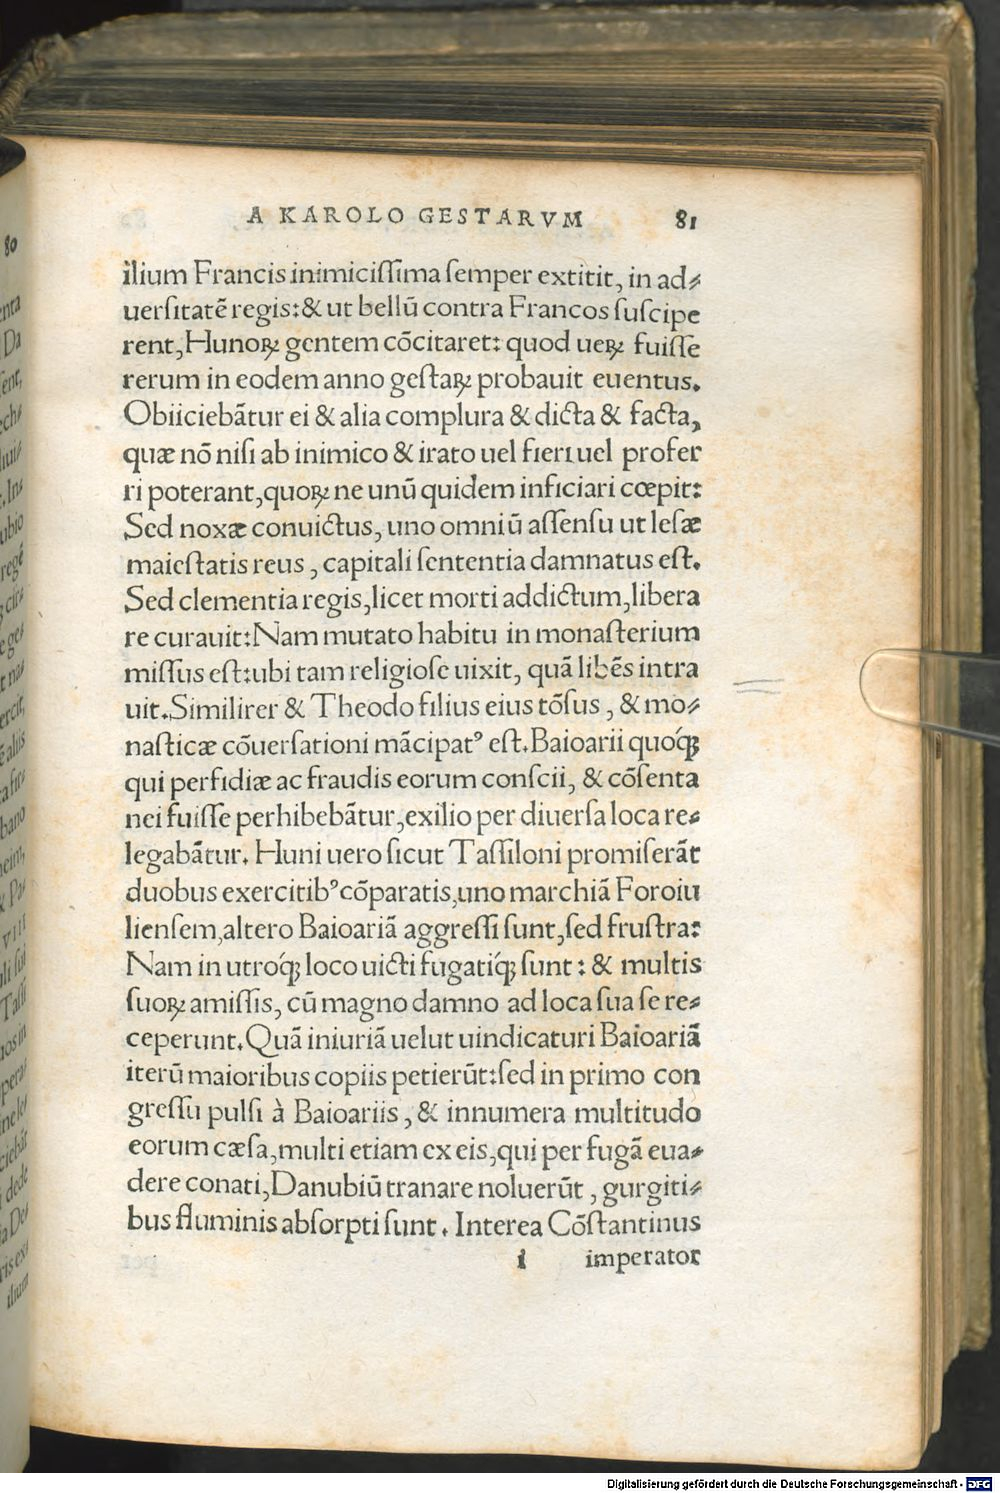 A KAROLO GESTARVM 81
ilium Francis inimiciſſima ſemper extitit, in ad⸗
uerſitatē regis:& ut bellū contra Francos ſuſcipe
rent,Hunoꝝ gentem cōcitaret: quod ueꝝ fuiſſe
rerum in eodem anno geſtaꝝ probauit euentus.
Obiiciebātur ei & alia complura & dicta & facta,
quæ nō niſi ab inimico & irato uel fieri uel profer
ri poterant,quoꝝ ne unū quidem inficiari cœpit:
Sed noxæ conuictus, uno omniū aſſenſu ut leſæ
maieſtatis reus , capitali ſententia damnatus eſt.
Sed clementia regis,licet morti addictum,libera
re curauit:Nam mutato habitu in monaſterium
miſſus eſt:ubi tam religioſe uixit, quā libēs intra
uit.Similirer & Theodo filius eius tōſus , & mo⸗
naſticæ cōuerſationi mācipatꝰ eſt.Baioarii quoq́ꝫ
qui perfidiæ ac fraudis eorum conſcii, & cōſenta
nei fuiſſe perhibebātur,exilio per diuerſa loca re⸗
legabātur. Huni uero ſicut Taſſiloni promiſerāt
duobus exercitibꝰ cōparatis,uno marchiā Foroiu
lienſem,altero Baioariā aggreſſi ſunt,ſed fruſtra:
Nam in utroq́ꝫ loco uicti fugatiq́ꝫ ſunt : & multis
ſuoꝝ amiſſis, cū magno damno ad loca ſua ſe re⸗
ceperunt.Quā iniuriā uelut uindicaturi Baioariā
iterū maioribus copiis petierūt:ſed in primo con
greſſu pulſi à Baioariis , & innumera multitudo
eorum cæſa,multi etiam ex eis,qui per fugā eua⸗
dere conati,Danubiū tranare noluerūt , gurgiti⸗
bus fluminis abſorpti ſunt . Interea Cōſtantinus
i imperator
80
enta
Da
ſent,
Digitalisierung gefördert durch die Deutsche Forschungsgemeinschaft - DFG